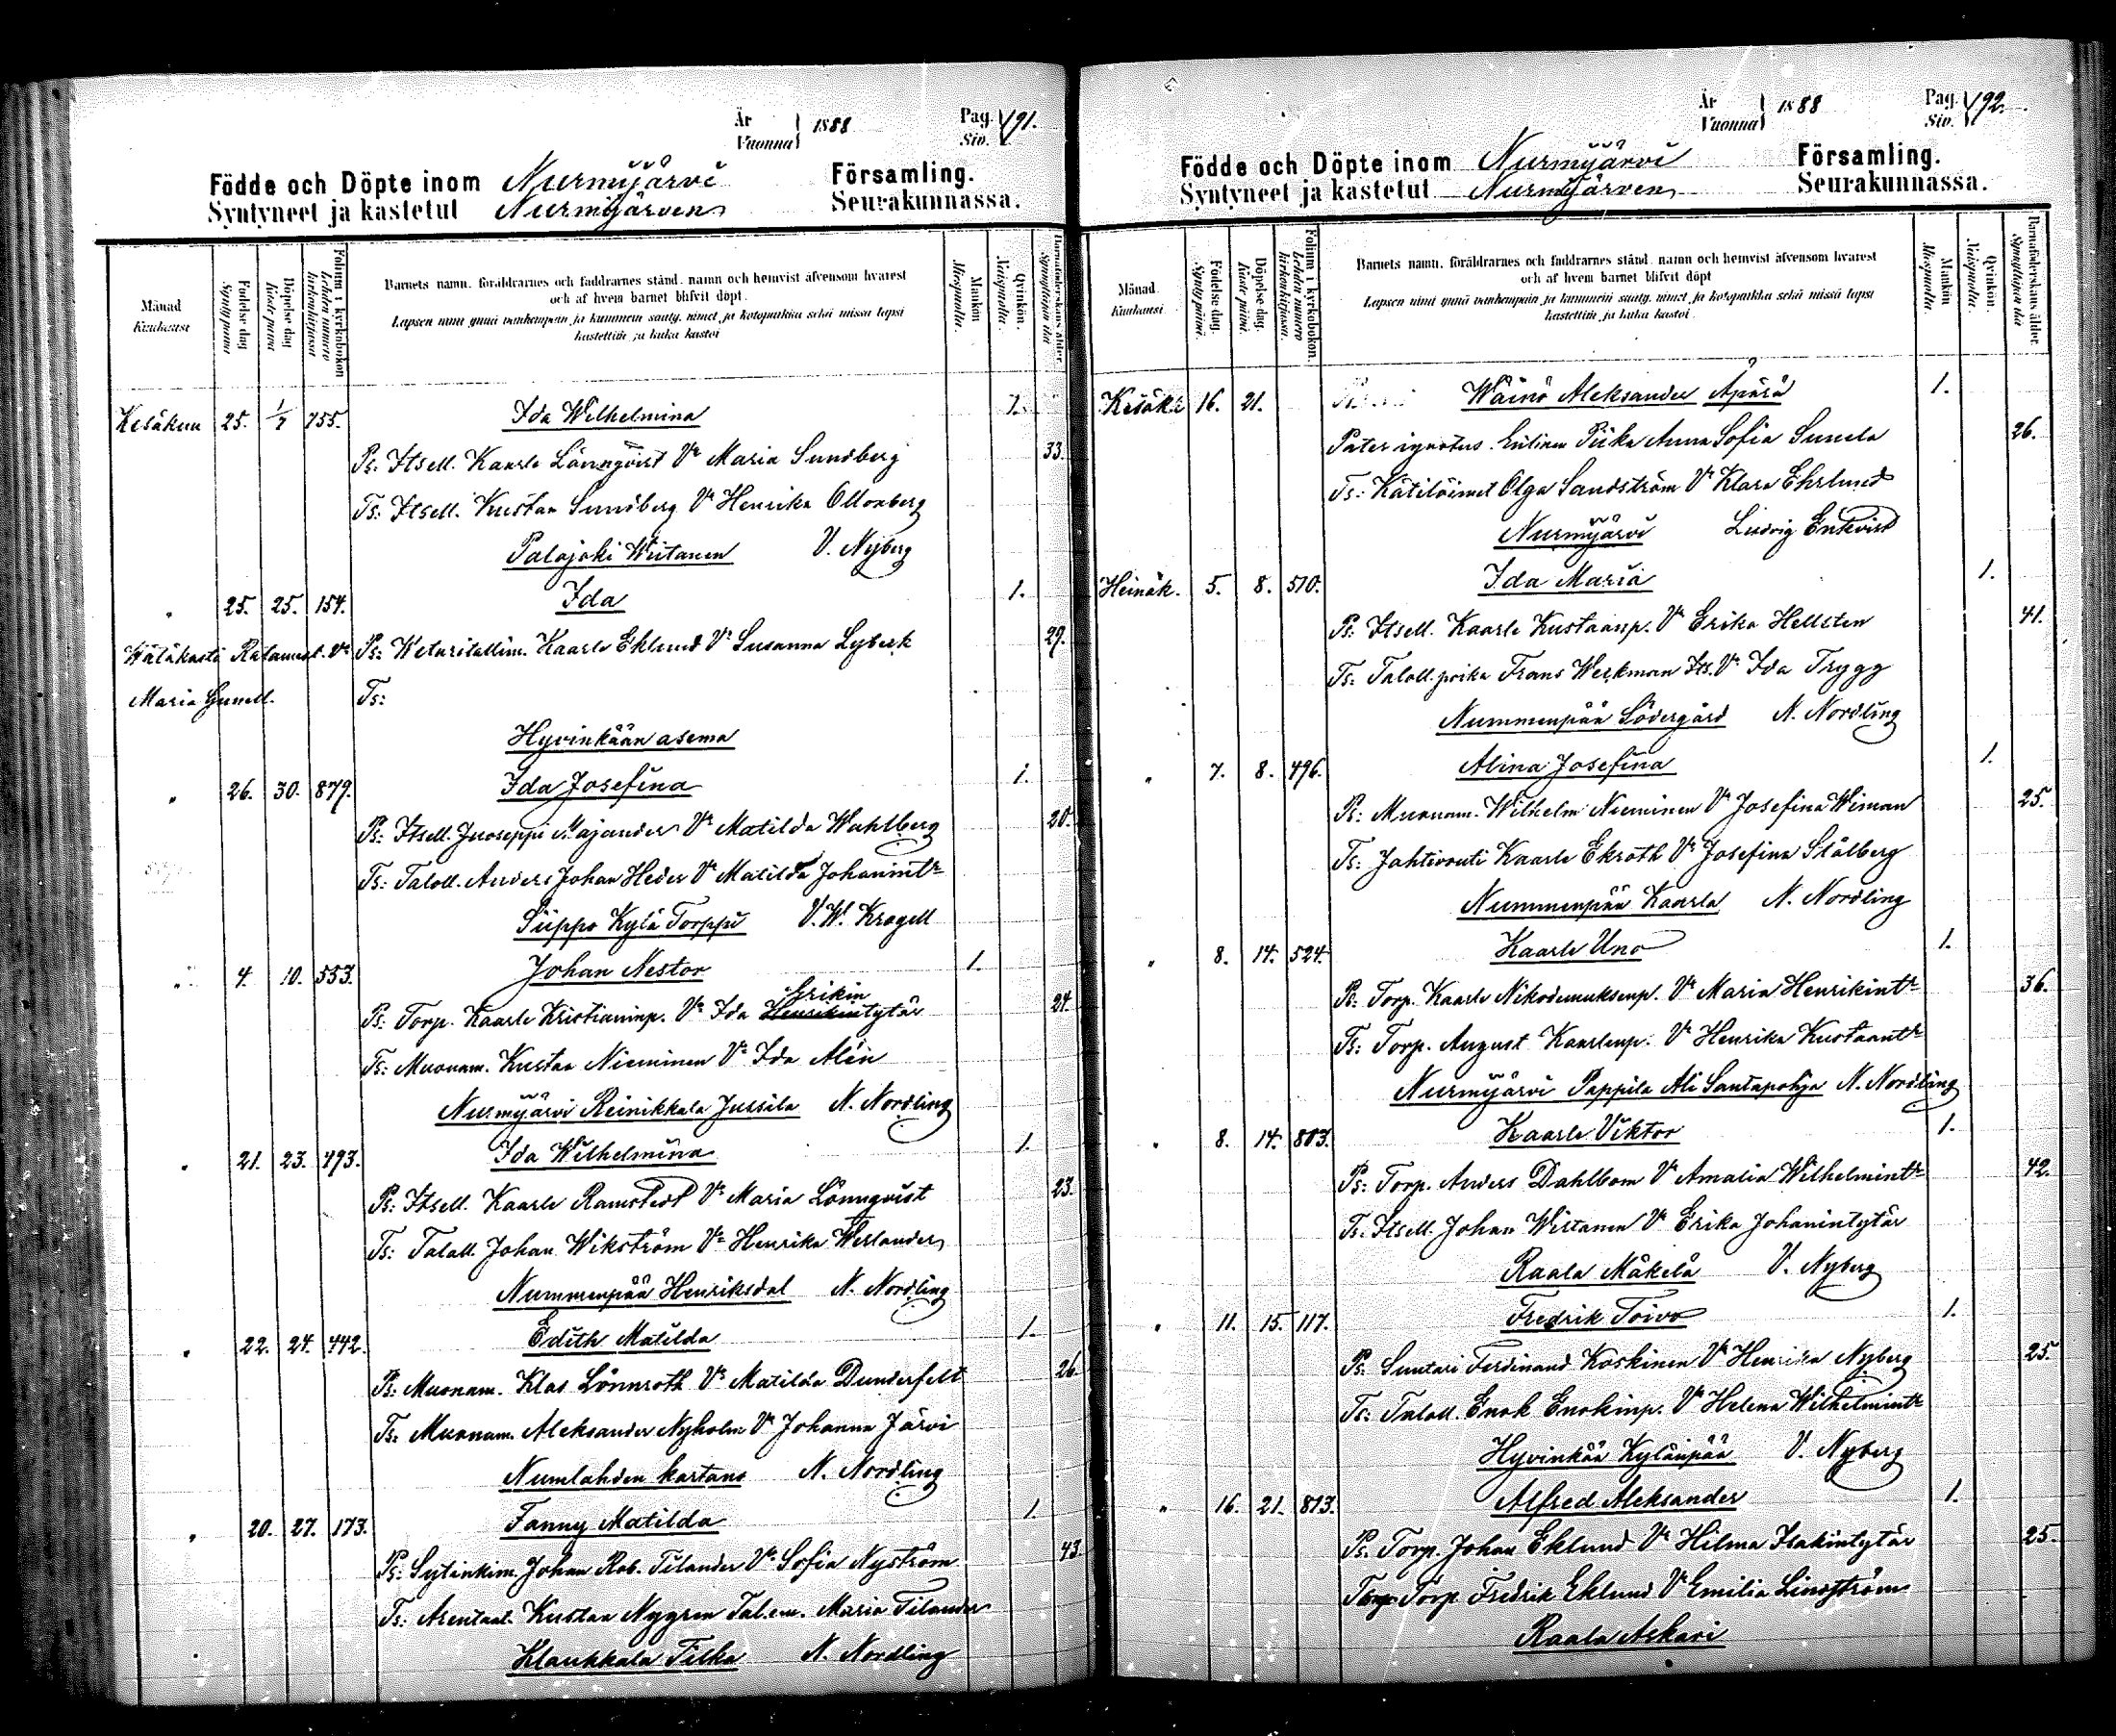 År Vuonna } 1888 Pag. Siv. } 191.
Födde och Döpte inom Nurmijärvi Församling.
Syntyneet ja kastetut Nurmijärven Seurakunnassa.
Månad Kuukausi
Födelse dag Synty päivä
Döpelse dag Kaste päivä
Folium i kyrkoboken Lehden numero kirkonkirjassa
Barnets namn, föräldrarnes och faddrarnes stånd, namn och hemvist äfvensom hvarest
och af hvem barnet blifvit döpt.
Lapsen nimi ynnä vanhempain ja kummein sääty, nimet ja kotopaikka sekä missä lapsi
kastettiin ja kuka kastoi
Mankön Miespuolta.
Qvinkön. Naispuolta.
Barnaföderskans ålder. Synnyttäjän ikä
Kesäkuu 25. 1/7 755. Ida Wilhelmina 1.
Ps: Itsell. Kaarle Lönnqvist Vo Maria Sundberg 33.
Ts: Itsell. Kustaa Sundberg Vo Henrika Ollonberg
Palojoki Wiitanen V. Nyberg
" 25. 25. 154. Ida 1.
Hätäkasti Ratamest. Vo Ps: Weturitallim. Kaarle Eklund Vo Susanna Lyberk 29.
Maria Gunell. Ts:
Hyvinkään asema
" 26. 30. 879. Ida Josefina 1.
Ps: Itsell. Juoseppi Majander Vo Matilda Wahlberg 20.
Ts: Taloll. Anders Johan Heder Vo Matilda Johanintr
Siippo Kylä Torppu V. W. Krogell
" 4. 10. 553. Johan Nestor 1.
Erikin
Ps: Torp. Kaarle Kristianinp. Vo Ida Henrikintytär 24.
Ts: Muonam. Kustaa Nieminen Vo Ida Alén
Nurmijärvi Reinikkala Jussila N. Nordling
" 21. 23. 493. Ida Wilhelmina 1.
Ps: Itsell. Kaarle Ramstedt Vo Maria Lönnqvist 23.
Ts: Taloll. Johan Wikström Vo Henrika Werlander
Nummenpää Henriksdal N. Nordling
" 22. 24. 442. Edith Matilda 1.
Ps: Muonam. Klas Lönnroth Vo Matilda Dunderfelt 26.
Ts: Muonam. Aleksander Nyholm Vo Johanna Järvi
Numlahden kartano N. Nordling
" 20. 27. 173. Fanny Matilda 1.
Ps: Sytinkim. Johan Rob. Tilander Vo Sofia Nyström 43.
Ts: Arentaal. Kustaa Nygren Tal.em. Maria Tilander
Klaukkala Tilka N. Nordling
År Vuonna } 1888 Pag. Siv. } 192.
Födde och Döpte inom Nurmijärvi Församling.
Syntyneet ja kastetut Nurmijärven Seurakunnassa.
Månad Kuukausi
Födelse dag. Synty päivä.
Döpelse dag. Kaste päivä.
Folium i kyrkoboken. Lehden numero kirkonkirjassa.
Barnets namn, föräldrarnes och faddrarnes stånd, namn och hemvist äfvensom hvarest
och af hvem barnet blifvit döpt
Lapsen nimi ynnä vanhempain ja kummein sääty, nimet ja kotopaikka sekä missä lapsi
kastettiin ja kuka kastoi
Mankön. Miespuolta.
Qvinkön. Naispuolta.
Barnaföderskans ålder. Synnyttäjän ikä
Kesäk. 16. 21. Wäinö Aleksander Äpärä 1.
Pater ignotus. Entinen Piika Anna Sofia Sunela 26.
Ts: Kätilöimet Olga Sandström Vo Klara Ehrlund
Nurmijärvi Ludvig Enkvist
Heinäk. 5. 8. 510. Ida Maria 1.
Ps: Itsell. Kaarle Kustaanp. Vo Erika Hellsten 41.
Ts: Taloll. poika Frans Werkman Its. Vo Ida Trygg
Nummenpää Södergård N. Nordling
" 7. 8. 496. Alina Josefina 1.
Ps: Muonam. Wilhelm Nieminen Vo Josefina Wiman 25.
Ts: Jahtivouti Kaarle Ekroth Vo Josefina Stålberg
Nummenpää Kaarla N. Nordling
" 8. 14. 524. Kaarle Uno 1.
Ps: Torp. Kaarle Nikodemuksenp. Vo Maria Henrikintr 36.
Ts: Torp. August Kaarlenp. Vo Henrika Kustaantr
Nurmijärvi Pappila Ali Santapohja N. Nordling
" 8. 14. 803. Kaarle Viktor 1.
Ps: Torp. Anders Dahlbom Vo Amalia Wilhelmintr 42.
Ts. Itsell. Johan Wirtanen Vo Erika Johanintytär
Raala Mäkelä V. Nyberg
" 11. 15. 117. Fredrik Toivo 1.
Ps: Suntari Ferdinand Koskinen Vo Henrika Nyberg 25.
Ts: Taloll. Enok Enokinp. Vo Helena Wilhelmintr
Hyvinkää Kylänpää V. Nyberg
" 16. 21. 813. Alfred Aleksander 1.
Ps. Torp. Johan Eklund Vo Hilma Isakintytär 25.
Torp Torp Fredrik Eklund Vo Emilia Lindström
Raala Askari